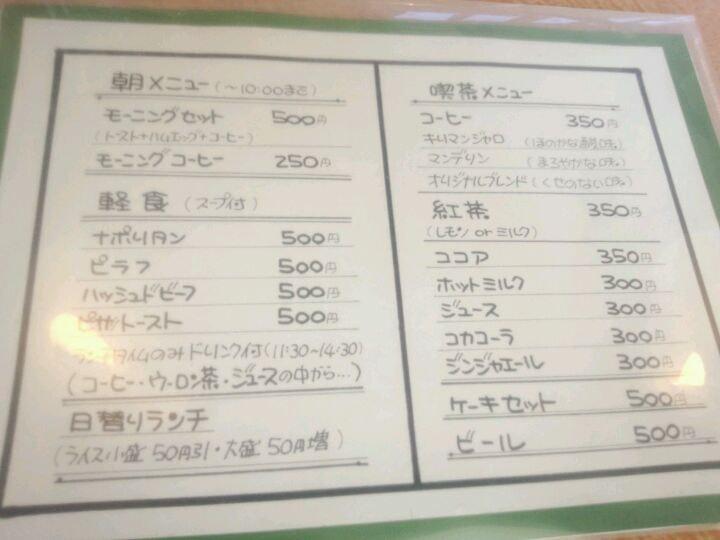 朝メニュー(~10:00まで)
モーニングセット 500円
(トースト+ハムエッグ+コーヒー)
モーニングコーヒー 250円
軽食(スープ付)
ナポリタン 500円
ピラフ 500円
ハッシュドビーフ 500円
ピザトースト 500円
ランチタイムのみドリンク付(11:30~14:30)
(コーヒー・ウーロン茶・ジュースの中から…)
日替りランチ
(ライス小盛50円引・大盛50円増)
喫茶メニュー
コーヒー 350円
キリマンジャロ (ほのかな酸味)
マンデリン (まろやかな味)
オリジナルブレンド (くせのない味)
紅茶 350円
(レモン or ミルク)
ココア 350円
ホットミルク 300円
ジュース 300円
コカコーラ 300円
ジンジャエール 300円
ケーキセット 500円
ビール 500円